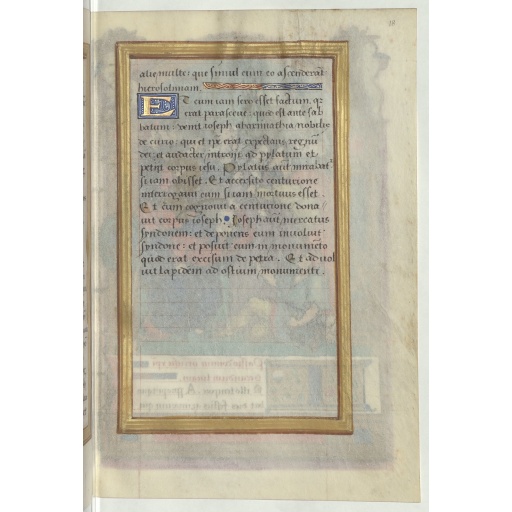 alie multe: que simul cum eo ascenderāt
hierosolimam.
Et cum iam sero esset factum, qr
erat parasceue: quod est ante sab
batum: venit ioseph abarimathia nobilis
de curio: qui et ipe erat expectans regnū
dei: et audacter introiit ad pylatum et
petiit corpus iesu. Pylatus aūt mirabatr
si iam obisset. Et accersito centurione
interrogauit eum si iam mortuus esset.
Et cum cognouit a centurione dona
uit corpus ioseph Ioseph aūt mercatus
syndonem: et deponens eum inuoluit
syndone: et posuit eum in monumēto
quod erat excisum de petra. Et aduol
uit lapidem ad ostium monumenti.